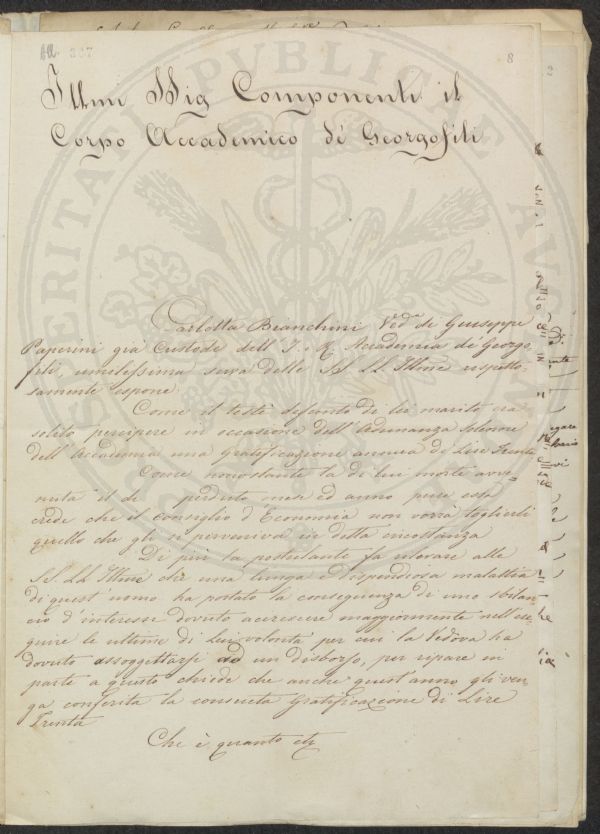 207
8
2
Illmi Sig Componenti il
Corpo Accademico de' Georgofili
Carlotta Bianchini Ved.a di Giuseppe
Paperini già Custode dell' I. e R. Accademia de Georgo
fili, umilissima serva delle SS. LL. Illme rispetto-
samente espone
Come il testè defunto di lei marito era
solito percipere in occasione dell' Adunanza Solenne
dell' Accademia una Gratificazione annua di Lire Trenta
Come nonostante la di lui morte avve-
nuta il dì perduto mese ed anno pure essa
crede che il Consiglio d' Economia non vorrà toglierli
quello che gli si perveniva in detta circostanza
Di più la postulante fa notare alle
SS. LL. Illme che una lunga e dispendiosa malattia
di quest' uomo ha portato la conseguenza di uno sbilan
cio d' interesse dovuto accrescere maggiormente nell' ese
guire le ultime di lui volontà per cui la Vedova ha
dovuto assoggettarsi ad un disborso, per ripare in
parte a questo chiede che anche quest' anno gli ven
ga conferita la consueta Gratificazione di Lire
Trenta
Che è quanto
PROSPERITATI PUBLICAE AUGENDAE